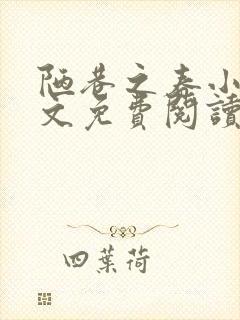 陋巷之春小
文免費閱讀
四葉荷